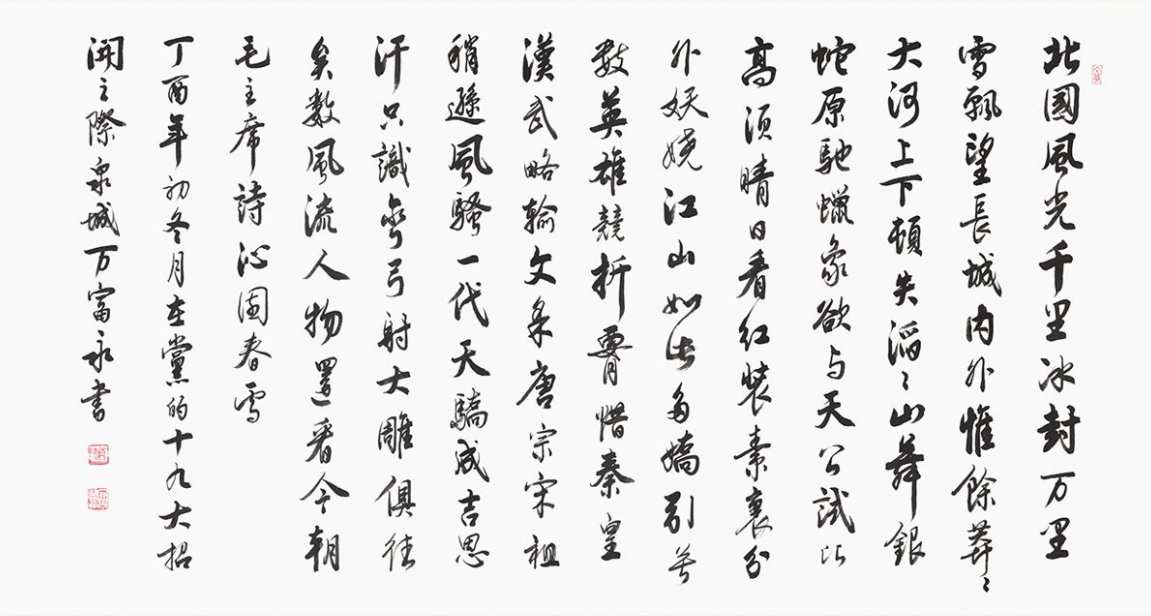 北國風光千里冰封万里
雪飄望長城内外惟餘莽〻
大河上下頓失滔〻山舞銀
蛇原馳蠟象欲与天公試比
高須晴日看红裝素裹分
外妖娆江山如此多嬌引無
数英雄競折腰惜秦皇
漢武略輸文采唐宗宋祖
稍遜風騷一代天驕成吉思
汗只識彎弓射大雕俱往
矣數風流人物還看今朝
毛主席詩沁園春雪
丁酉年初冬月在黨的十九大招
開之際泉城万富永書